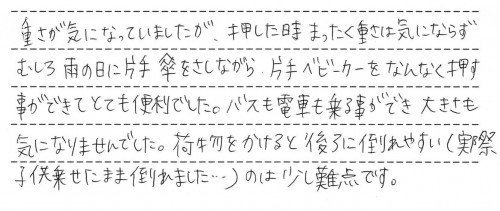 重さが気になっていましたが、押した時 まったく重さは気にならず
むしろ 雨の日に片手 傘をさしながら、片手ベビーカーをなんなく押す
事ができてとても便利でした。バスも電車も乗る事ができ 大きさも
気になりませんでした。荷物をかけると後ろに倒れやすい(実際
子供乗せたまま倒れました…)のは少し難点です。